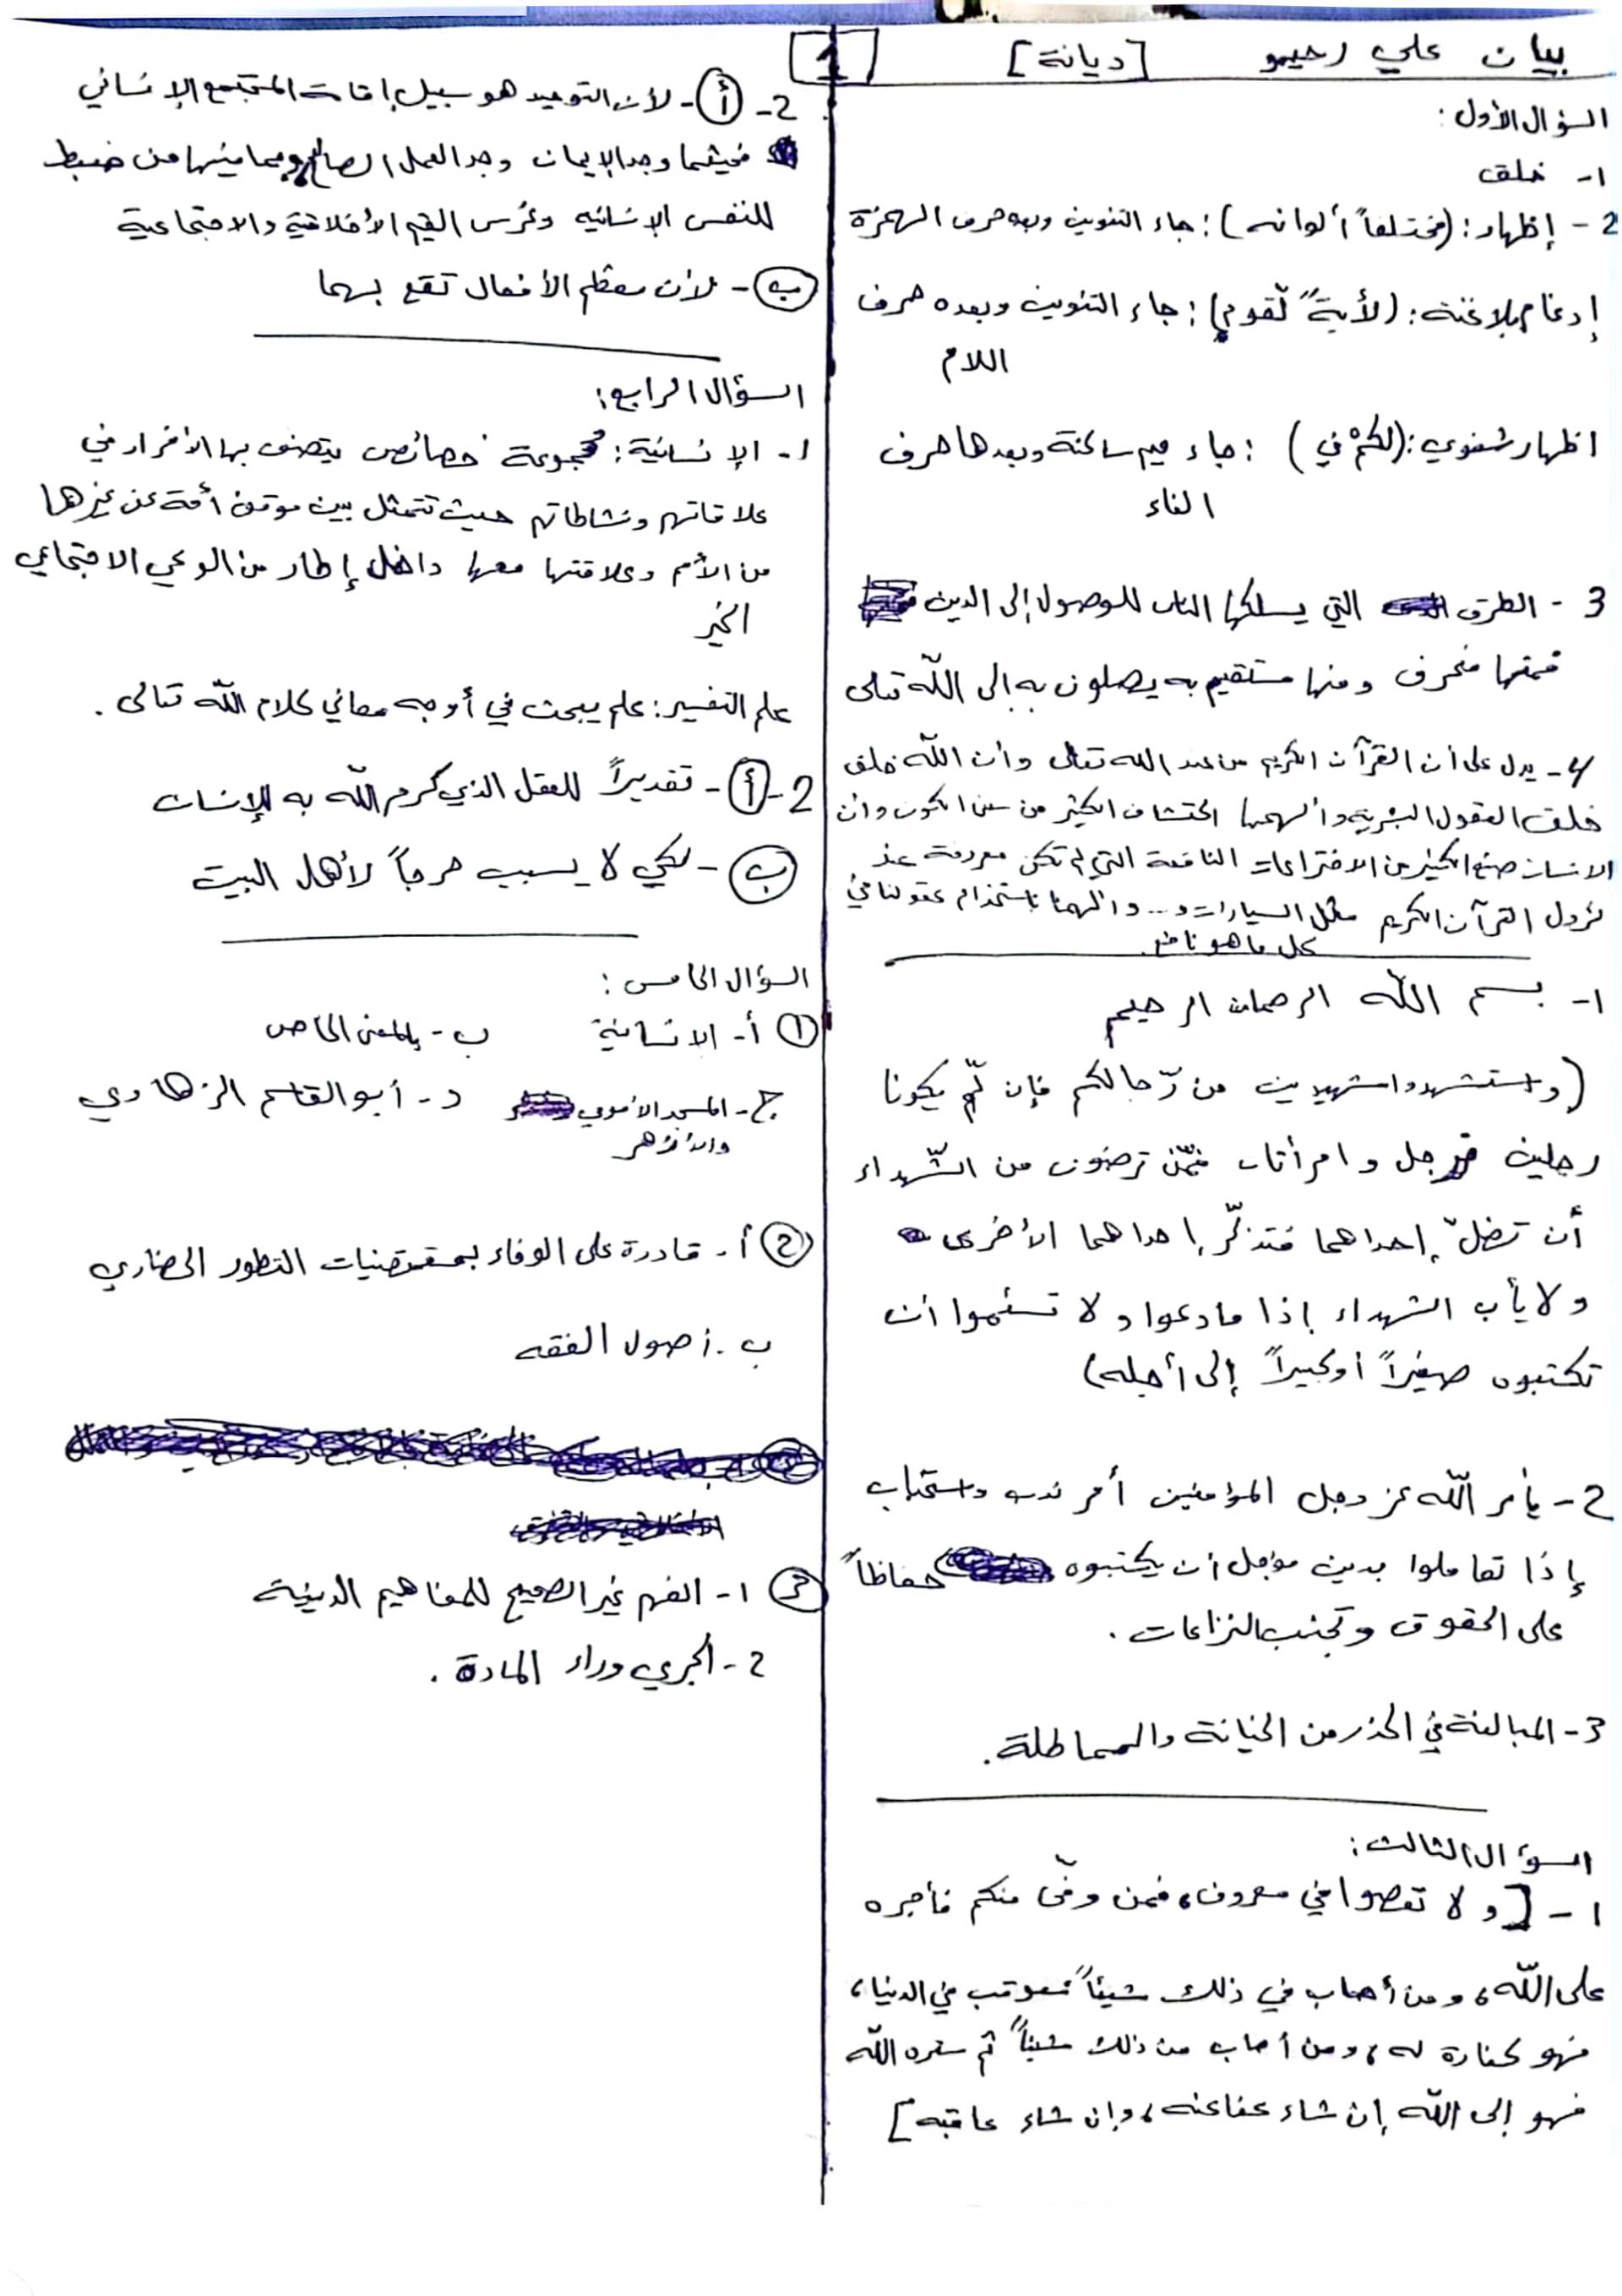 بيان علي رحيمو [ديانة] 1
السؤال الأول:
1- خلق
2- إظهار: (مختلفاً ألوانه): جاء التنوين وبعده حرف الهمزة
إدغام بلا غنة: (لأيةً لّقوم): جاء التنوين وبعده حرف
اللام
اظهار شفوي: (لكمْ في): جاء ميم ساكنة وبعدها حرف
الفاء
3- الطرق التي يسلكها الناس للوصول إلى الدين
فمنها منحرف ومنها مستقيم به يصلون به إلى الله تعالى
4- يدل على أن القرآن الكريم من عند الله تعالى وأن الله خلق
خلق العقول البشرية وألهمها اكتشاف الكثير من سنن الكون وأن
الانسان صنع الكثير من الاختراعات النافعة التي لم تكن معروفة عند
نزول القرآن الكريم مثل السيارات و... وألهمنا باستخدام عقولنا في
كل ما هو نافع.
1- بسم الله الرحمان الرحيم
(واستشهدوا شهيدين من رّجالكم فإن لّم يكونا
رجلين فرجل وامرأتان ممّن ترضون من الشّهداء
أن تضلّ إحداهما فتذكّر إحداهما الأخرى
ولا يأب الشهداء إذا ما دعوا ولا تسئموا أن
تكتبوه صغيراً أو كبيراً إلى أجله)
2- يأمر الله عز وجل المؤمنين أمر ندب واستحباب
إذا تعاملوا بدين مؤجل أن يكتبوه حفاظاً
على الحقوق وتجنب النزاعات.
3- المبالغة في الحذر من الخيانة والمماطلة.
السؤال الثالث:
1- [ولا تعصوا في معروف، فمن وفّى منكم فأجره
على الله، ومن أصاب في ذلك شيئاً فعوقب في الدنيا،
فهو كفارة له، ومن أصاب من ذلك شيئاً ثم ستره الله
فهو إلى الله إن شاء عفا عنه، وإن شاء عاقبه]
2- أ- لأن التوحيد هو سبيل إقامة المجتمع الإنساني
فحيثما وجد الإيمان وجد العمل الصالح وبما فيها من ضبط
للنفس الإنسانيه وغرس القيم الأخلاقية والاجتماعية
ب- لأن معظم الأفعال تقع بهما
السؤال الرابع:
1- الإنسانية: مجموعة خصائص يتصف بها الأفراد في
علاقاتهم ونشاطاتهم حيث تتمثل بين موقف أمة عن غيرها
من الأمم وعلاقتها معها داخل إطار من الوعي الاجتماعي
الخير
علم التفسير: علم يبحث في أوجه معاني كلام الله تعالى.
2- أ- تقديراً للعقل الذي كرم الله به الإنسان
ب- لكي لا يسبب حرجاً لأهل البيت
السؤال الخامس:
1 أ- الانسانية ب- بالمعنى الخاص
ج- المسجد الأموي د- أبو القاسم الزهاوي
والأزهر
2 أ- قادرة على الوفاء بمقتضيات التطور الحضاري
ب. أصول الفقه
3 1- الفهم غير الصحيح للمفاهيم الدينية
2- الجري وراء المادة.